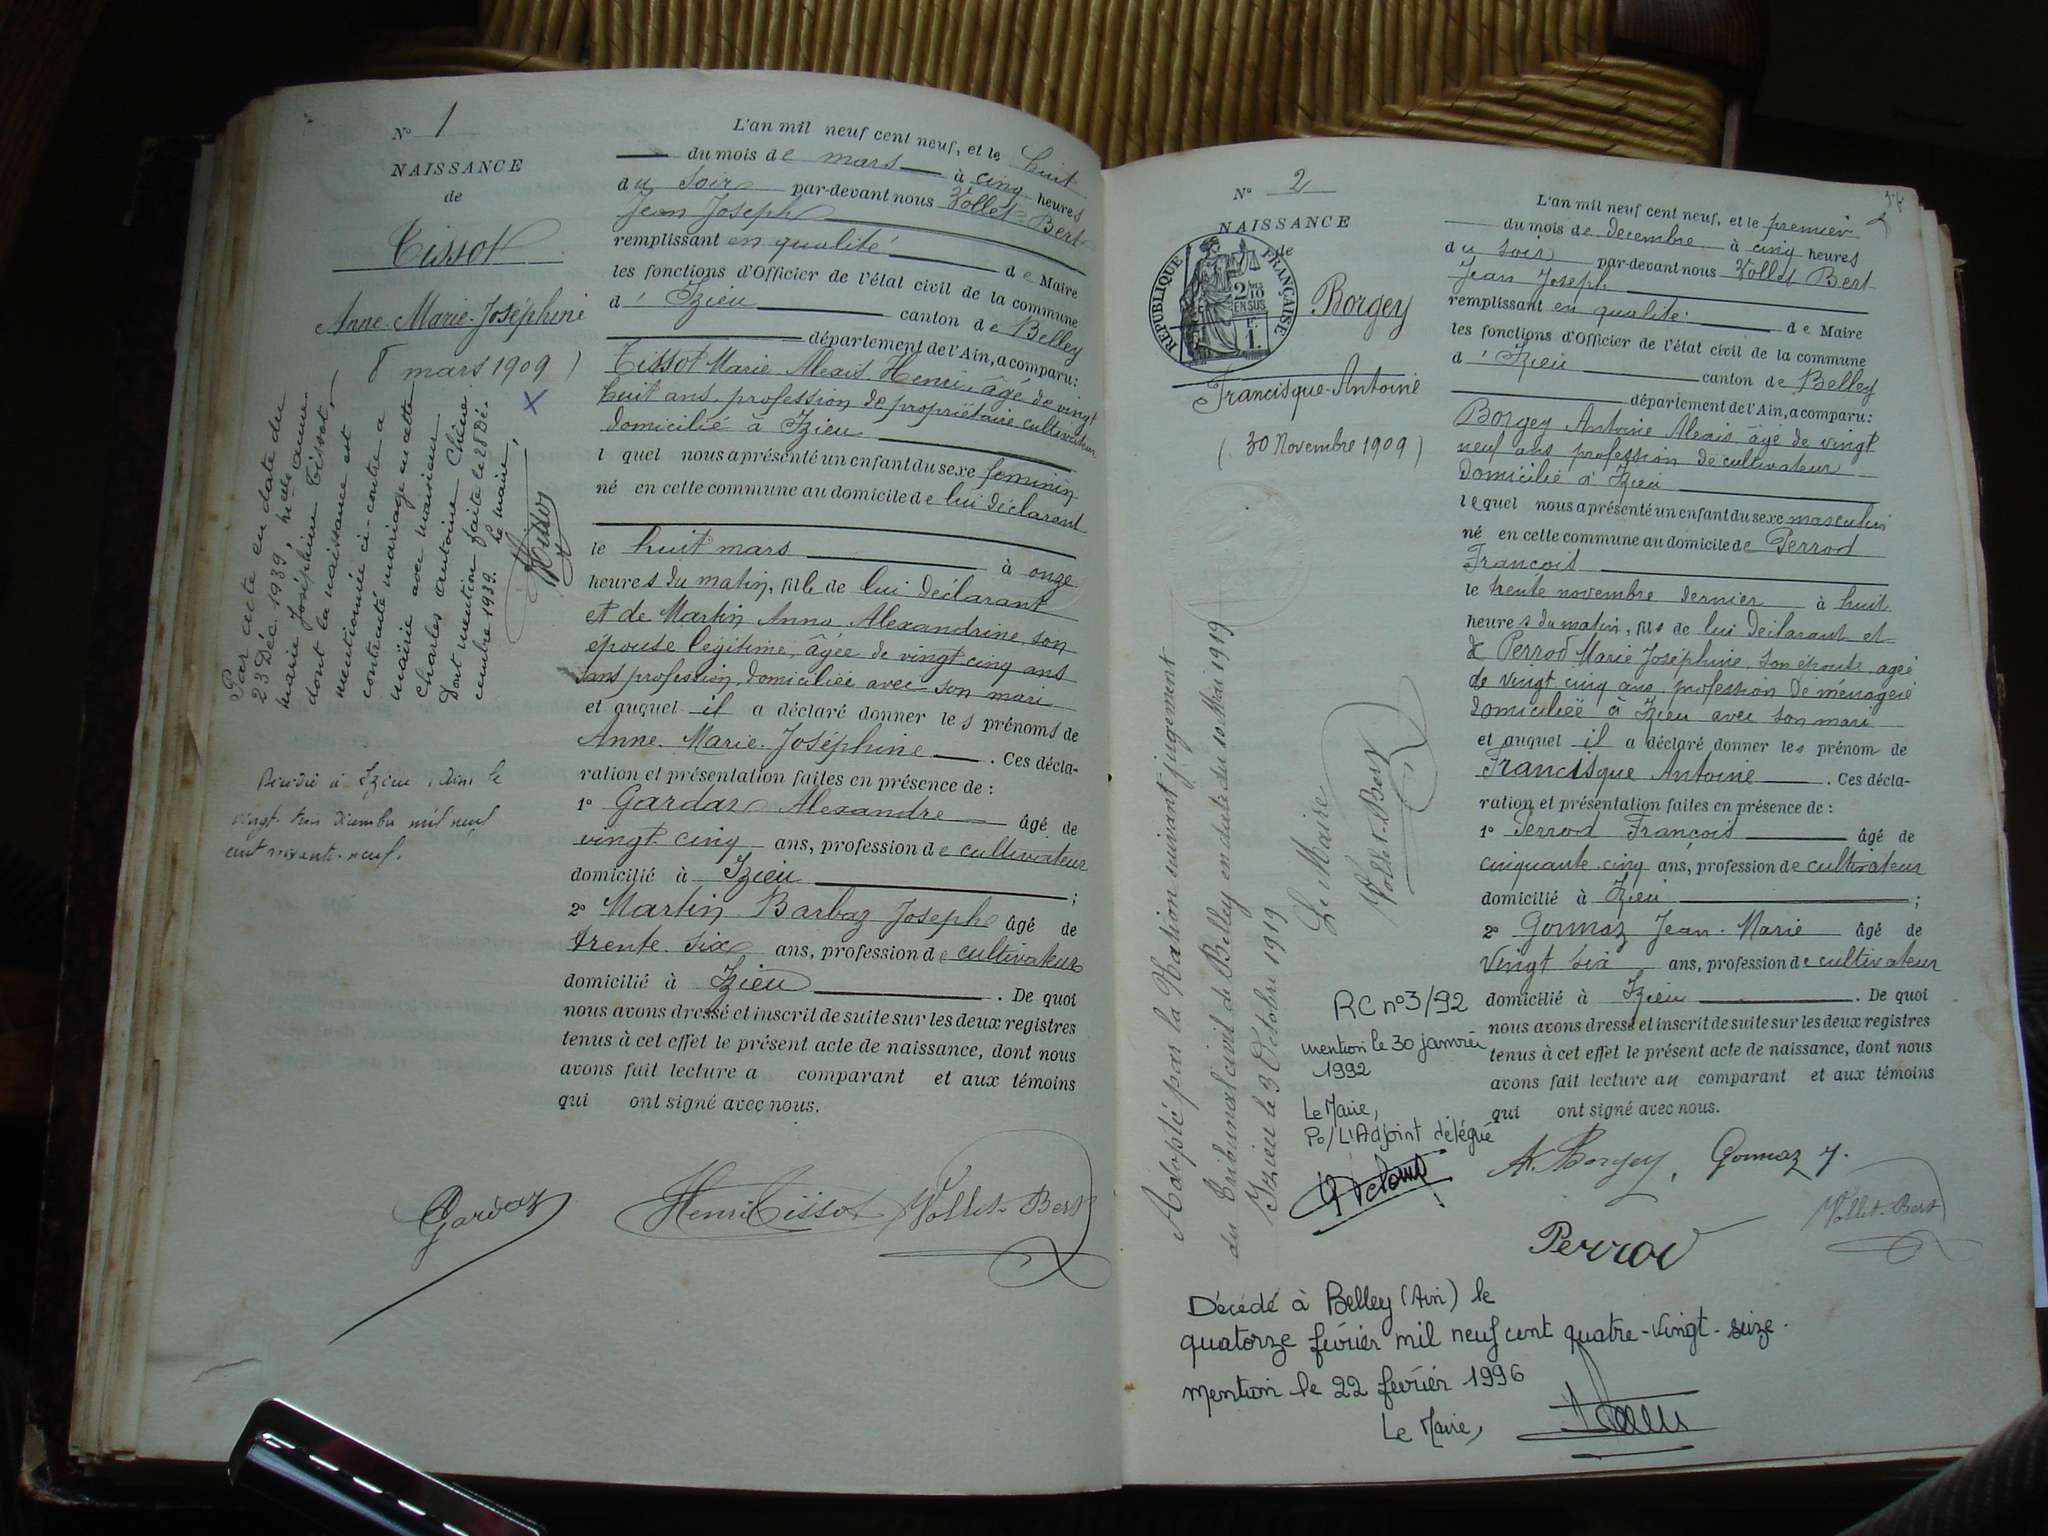 N° 1
NAISSANCE
de
Tissot
Anne Marie Joséphine
8 mars 1909)
Par acte en date du
23 Déc. 1939, 
Marie Joséphine Tissot,
dont la naissance est
mentionnée ci-contre a
contracté mariage en cette
mairie avec 
Charles Antoine
Dont mention faite le 28 Dé-
cembre 1939. Le maire,
HTissot
Décédée à Izieu (Ain) le
vingt trois Décembre mil neuf
cent soixante-neuf.
L'an mil neuf cent neuf, et le huit
du mois de mars à cinq heures
du soir par-devant nous Vollet-Bert
Jean Joseph
remplissant en qualité de Maire
les fonctions d'Officier de l'état civil de la commune
d' Izieu canton de Belley
département de l'Ain, a comparu:
Tissot Marie Alexis Henri, âgé de vingt
huit ans, profession de propriétaire cultivateur
domicilié à Izieu
lequel nous a présenté un enfant du sexe féminin
né en cette commune au domicile de lui déclarant
le huit mars à onze
heures du matin, fille de lui déclarant
et de Martin Anna Alexandrine, son
épouse légitime, âgée de vingt cinq ans
sans profession, domiciliée avec son mari
et auquel il a déclaré donner les prénoms de
Anne Marie Joséphine. Ces décla-
ration et présentation faites en présence de :
1° Gardaz Alexandre âgé de
vingt cinq ans, profession de cultivateur
domicilié à Izieu ;
2° Martin Barbaz Joseph âgé de
trente six ans, profession de cultivateur
domicilié à Izieu. De quoi
nous avons dressé et inscrit de suite sur les deux registres
tenus à cet effet le présent acte de naissance, dont nous
avons fait lecture a comparant et aux témoins
qui ont signé avec nous.
Gardaz Henri Tissot Vollet-Bert
N° 2
NAISSANCE
de
REPUBLIQUE FRANÇAISE
2/10
EN SUS
1.
Borgey
Francisque-Antoine
(30 Novembre 1909)
Adopté par la Nation suivant jugement
du Tribunal civil de Belley en date du 10 Mai 1919
Izieu le 3 Octobre 1919
Le Maire
Vollet-Bert
RC n°3/92
mention le 30 janvier
1992
Le Maire,
Po/L'Adjoint délégué
L'an mil neuf cent neuf, et le premier
du mois de decembre à cinq heures
du soir par-devant nous Vollet Bert
Jean Joseph
remplissant en qualité de Maire
les fonctions d'Officier de l'état civil de la commune
d' Izieu canton de Belley
département de l'Ain, a comparu :
Borgey Antoine Alexis, âgé de vingt
neuf ans profession de cultivateur
domicilié à Izieu
lequel nous a présenté un enfant du sexe masculin
né en cette commune au domicile de Perrod
François
le trente novembre dernier à huit
heures du matin, fils de lui déclarant et
de Perrod Marie Joséphine, son épouse, agée
de vingt cinq ans, profession de ménagère
domiciliée à Izieu avec son mari
et auquel il a déclaré donner les prénom de
Francisque Antoine. Ces décla-
ration et présentation faites en présence de :
1° Perrod François âgé de
cinquante cinq ans, profession de cultivateur
domicilié à Izieu ;
2° Gonnaz Jean-Marie âgé de
vingt six ans, profession de cultivateur
domicilié à Izieu. De quoi
nous avons dressé et inscrit de suite sur les deux registres
tenus à cet effet le présent acte de naissance, dont nous
avons fait lecture au comparant et aux témoins
qui ont signé avec nous.
A. Borgey, Gonnaz J.
Perrod Vollet-Bert
Décédé à Belley (Ain) le
quatorze février mil neuf cent quatre-vingt-seize.
mention le 22 février 1996
Le Maire,